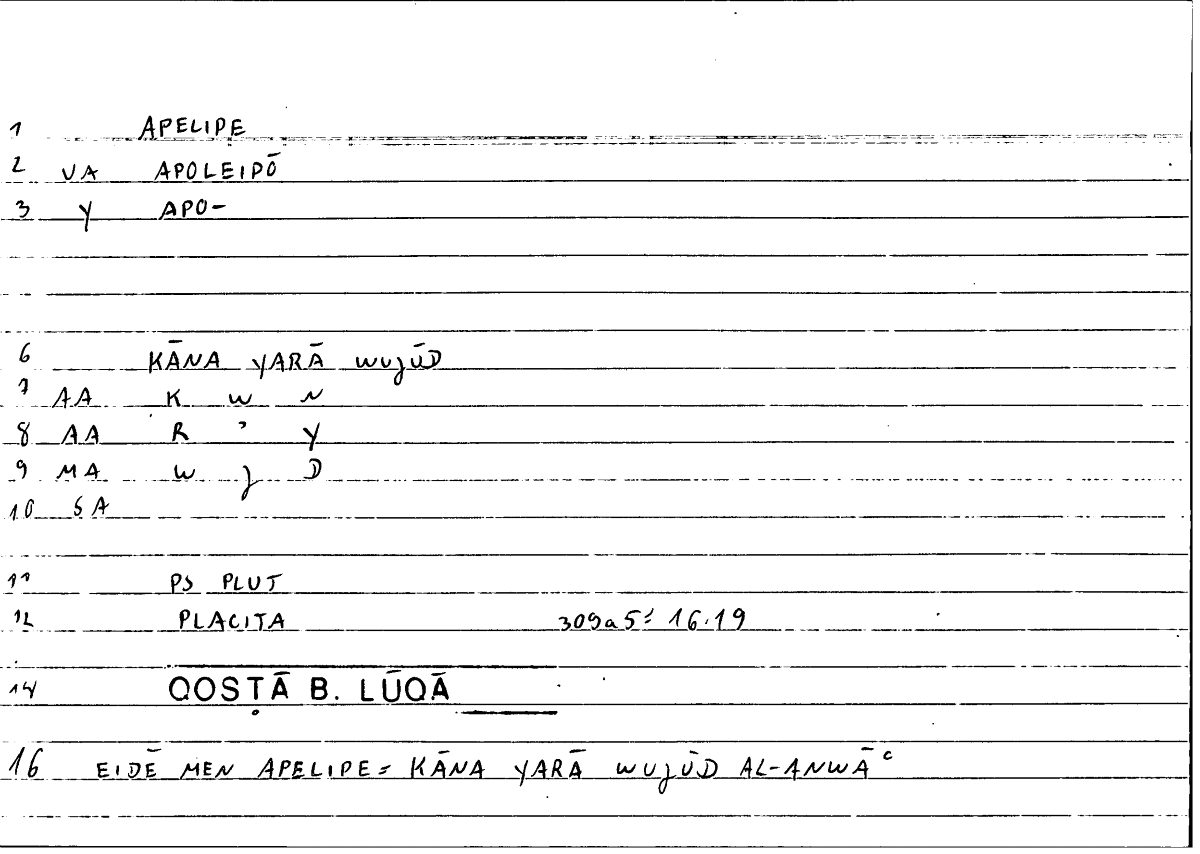 1 APELIPE
2 VA APOLEIPŌ
3 Y APO-
6 KĀNA YARĀ WUJŪD
7 AA K W N
8 AA R ʾ Y
9 MA W J D
10 SA
11 PS PLUT
12 PLACITA 309a5 = 16.19
14 QOSṬĀ B. LŪQĀ
16 EIDĒ MEN APELIPE = KĀNA YARĀ WUJŪD AL-ANWĀʿ